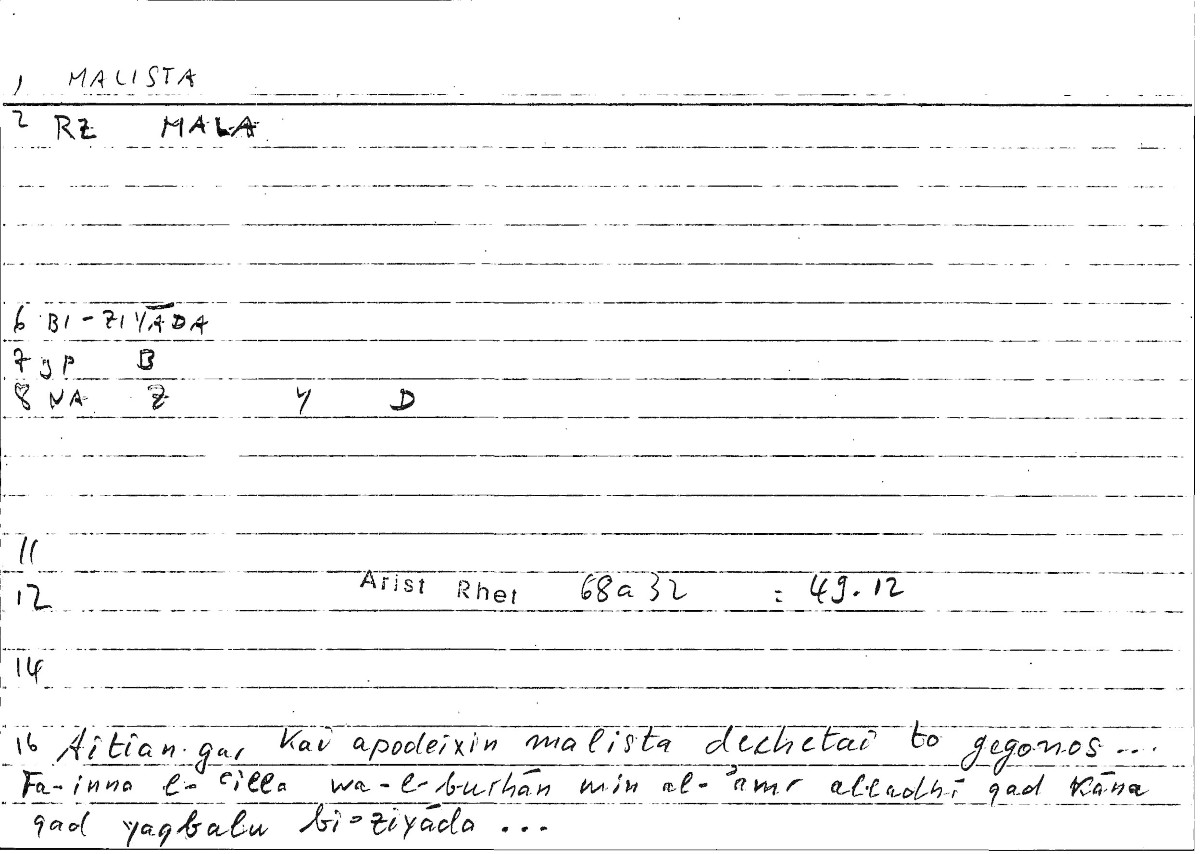 1 MALISTA
2 RZ MALA
6 BI-ZIYĀDA
7 gp B
8 NA Z Y D
11
12 Arist Rhet 68a32 = 49.12
14
16 Aitian gar kai apodeixin malista dechetai to gegonos...
Fa-inna l-ʿilla wa-l-burhān min al-ʾamr alladhī qad kāna
qad yaqbalu bi-ziyāda ...